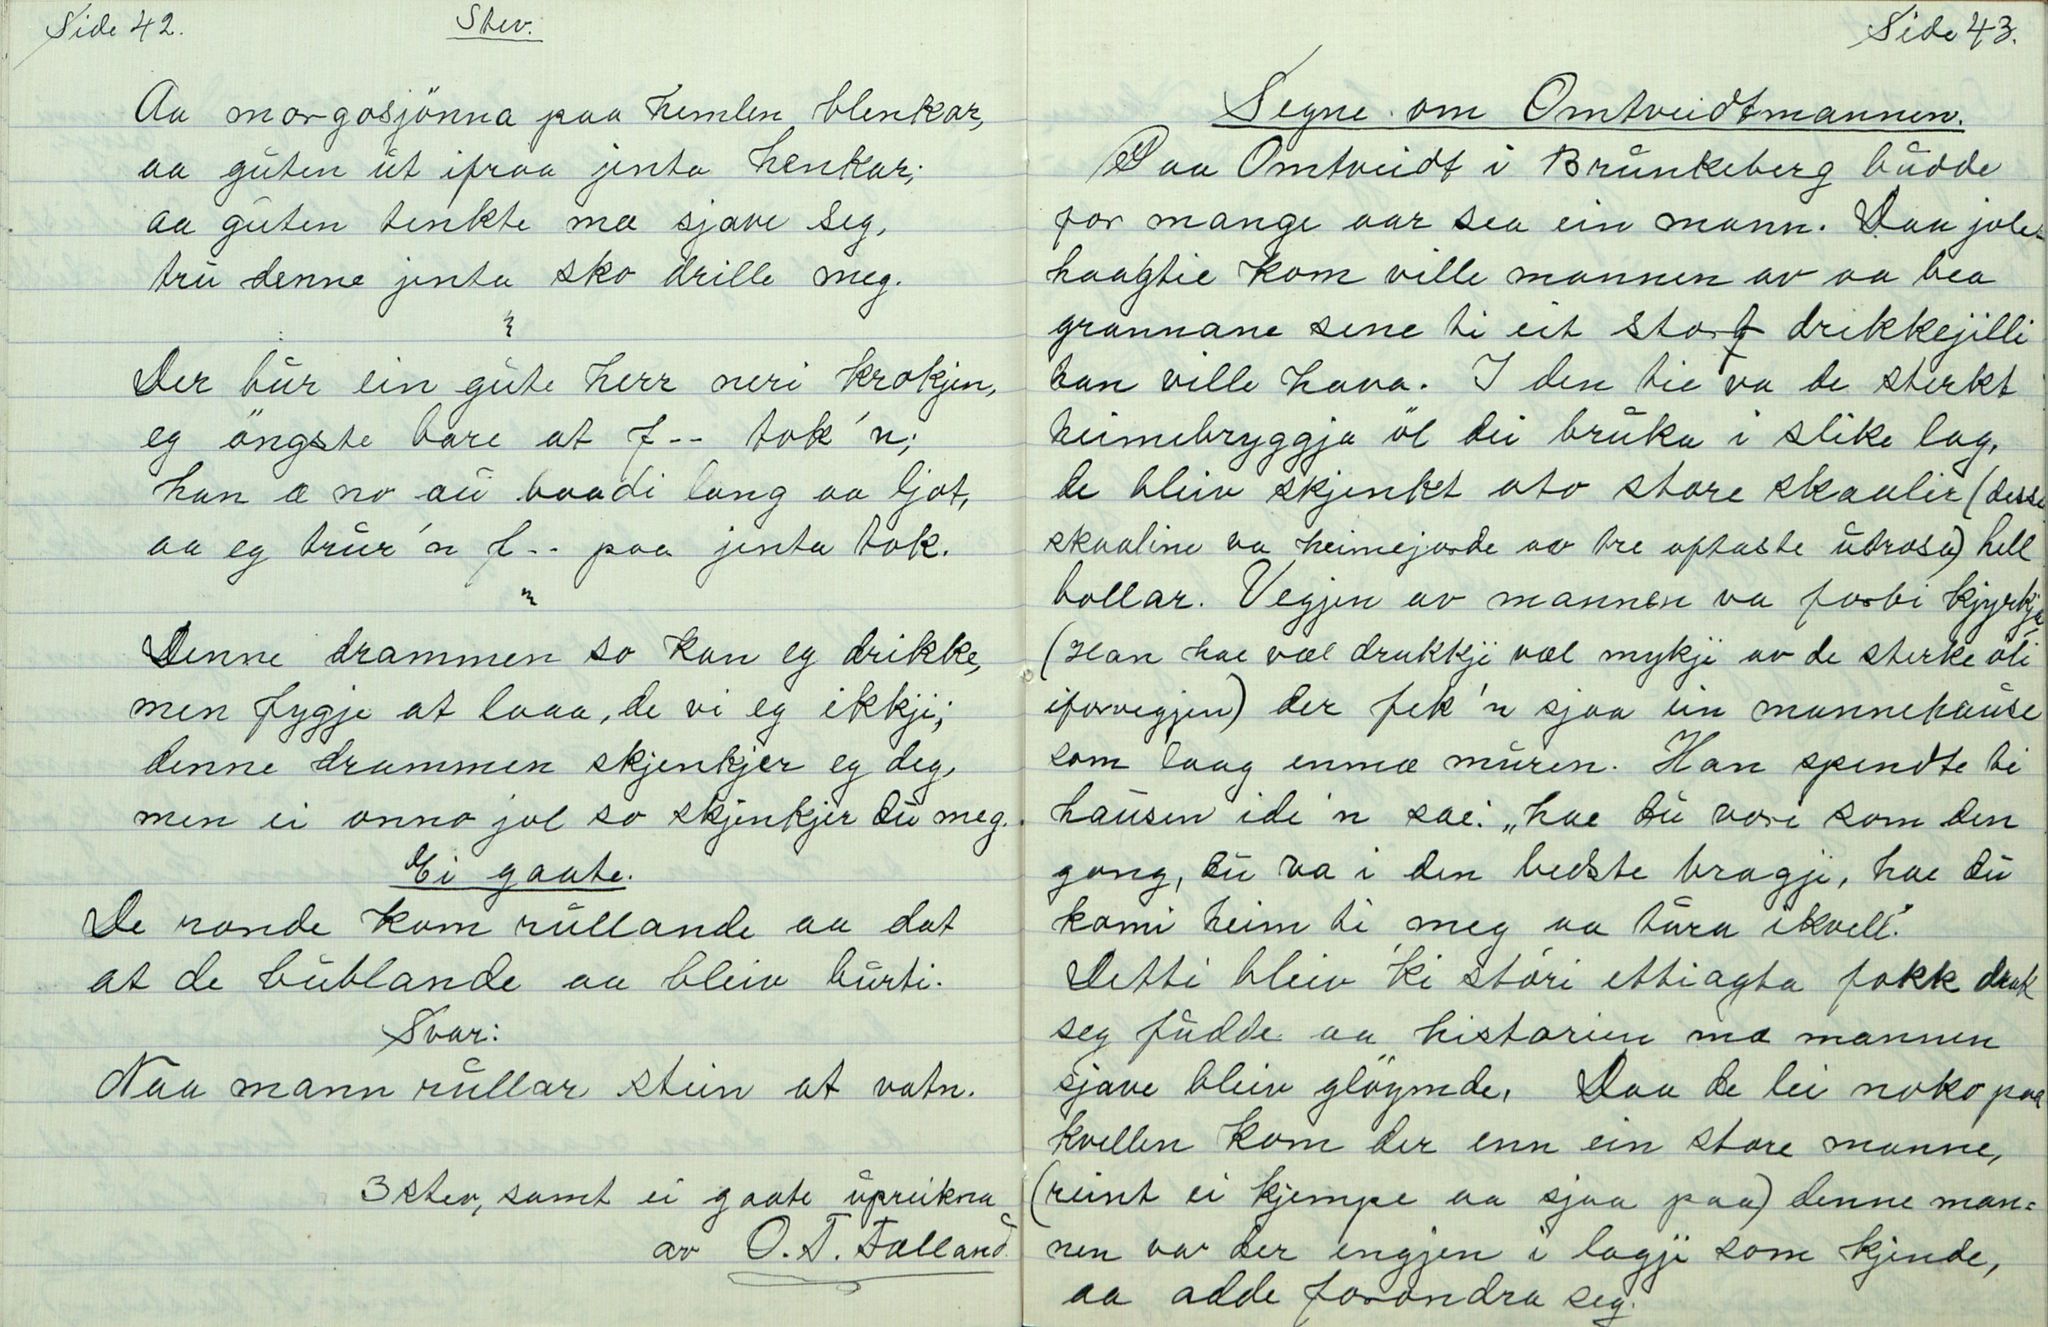 Side 42.
Stev.
Aa morgosjönna paa himlen blenkar,
aa guten ut ifraa jenta henkar;
aa guten tenkte mæ sjave seg,
tru denne jenta sko drille meg.
Der bur ein gute herr neri krokjen,
eg öngste bare at f-- tok'n;
han æ no au baadi lang aa ljot,
aa eg trur'n f-- paa jenta tok.
Denne drammen so kan eg drikke,
men fygje at laaa, de vi eg ikkji;
denne drammen skjenkjer eg deg,
men ei onno jol so skjenkjer du meg.
Ei gaate.
De ronde kom rullande aa dat
at de bublande aa bleiv burti.
Svar:
Naa mann rullar stein at vatn.
3 stev, samt ei gaate upreikna
av O. T. Falland.
Side 43.
Segne om Omtveidtmannen.
Paa Omtveidt i Brunkeberg budde
for mange aar sea ein mann. Daa jole-
haagtie kom ville mannen av aa bea
grannane sine ti eit stort drikkejilli
han ville hava. I den tie va de sterkt
heimebryggja öl dei bruka i slike lag,
de bleiv skjenkt oto store skaalir (desse
skaaline va heimejorde av tre oftaste utrosa) hell
bollar. Vegjen av mannen va forbi kjyrkja
(Han hae væl drukkji væl mykji av de sterke öli
iforvegjen) der fek'n sjaa ein mannehause
som laag enmæ muren. Han spendte ti
hausen idi'n sae: „hae du vore som den
gong, du va i den bedste bragji, hae du
komi heim ti meg aa tura ikvell."
Detti bleiv 'ki stori ettiagta fokk drak
seg fudde aa historien mæ mannen
sjave bleiv glöymde. Daa de lei noko paa
kvellen kom der enn ein store manne,
(reint ei kjempe aa sjaa paa) denne man=
nen var der engjen i lagji som kjende,
aa adde forondra seg.